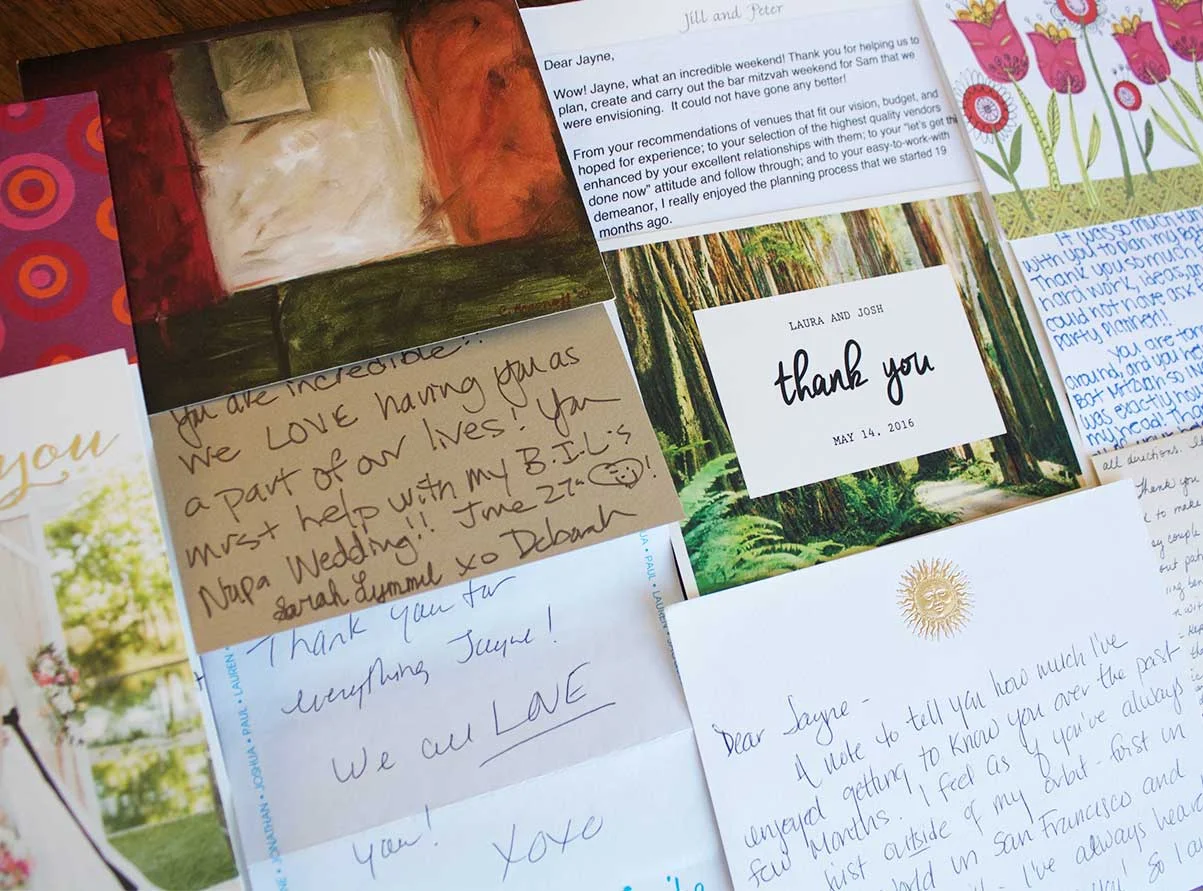 Jill and Peter
Dear Jayne,
Wow! Jayne, what an incredible weekend! Thank you for helping us to
plan, create and carry out the bar mitzvah weekend for Sam that we
were envisioning. It could not have gone any better!
From your recommendations of venues that fit our vision, budget, and
hoped for experience; to your selection of the highest quality vendors
enhanced by your excellent relationships with them; to your "let's get thi
done now" attitude and follow through; and to your easy-to-work-with
demeanor, I really enjoyed the planning process that we started 19
months ago.
It was so much
with you to plan my Bat
Thank you so much
hard work, ideas,
could not have ask
party planner!
you are
around, and you
Bat Mitzvah so
was exactly
my head!
LAURA AND JOSH
thank you
MAY 14, 2016
You are incredible!!
We LOVE having you as
a part of our lives! You
must help with my B.I.L.'s
Napa Wedding!! June 27th !
xo Deborah
you
Thank you for
everything Jayne!
We all LOVE
you!
xoxo
JONATHAN • JOSHUA • PAUL • LAUREN •
UA • PAUL • LAUREN
all directions.
thank you
to make
couple
out
Dear Jayne -
A note to tell you how much I've
enjoyed getting to know you over the past
few months. I feel as if you've always
just outside of my orbit - first in
in San Francisco and
I've always hear
So I a